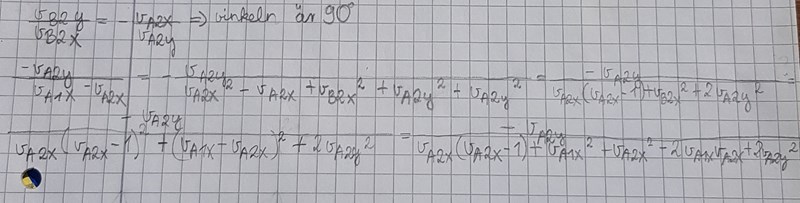 v_B2y/v_B2x = - v_A2x/v_A2y => vinkeln är 90°
-v_A2y/(v_A1x - v_A2x) = - v_A2y/(v_A2x² - v_A2x + v_B2x² + v_A2y² + v_A2y²) = - v_A2y/(v_A2x(v_A2x-1) + v_B2x² + 2v_A2y²) =
- v_A2y/(v_A2x(v_A2x-1) + (v_A1x - v_A2x)² + 2v_A2y²) = - v_A2y/(v_A2x(v_A2x-1) + v_A1x² + v_A2x² - 2v_A1x v_A2x + 2v_A2y²)